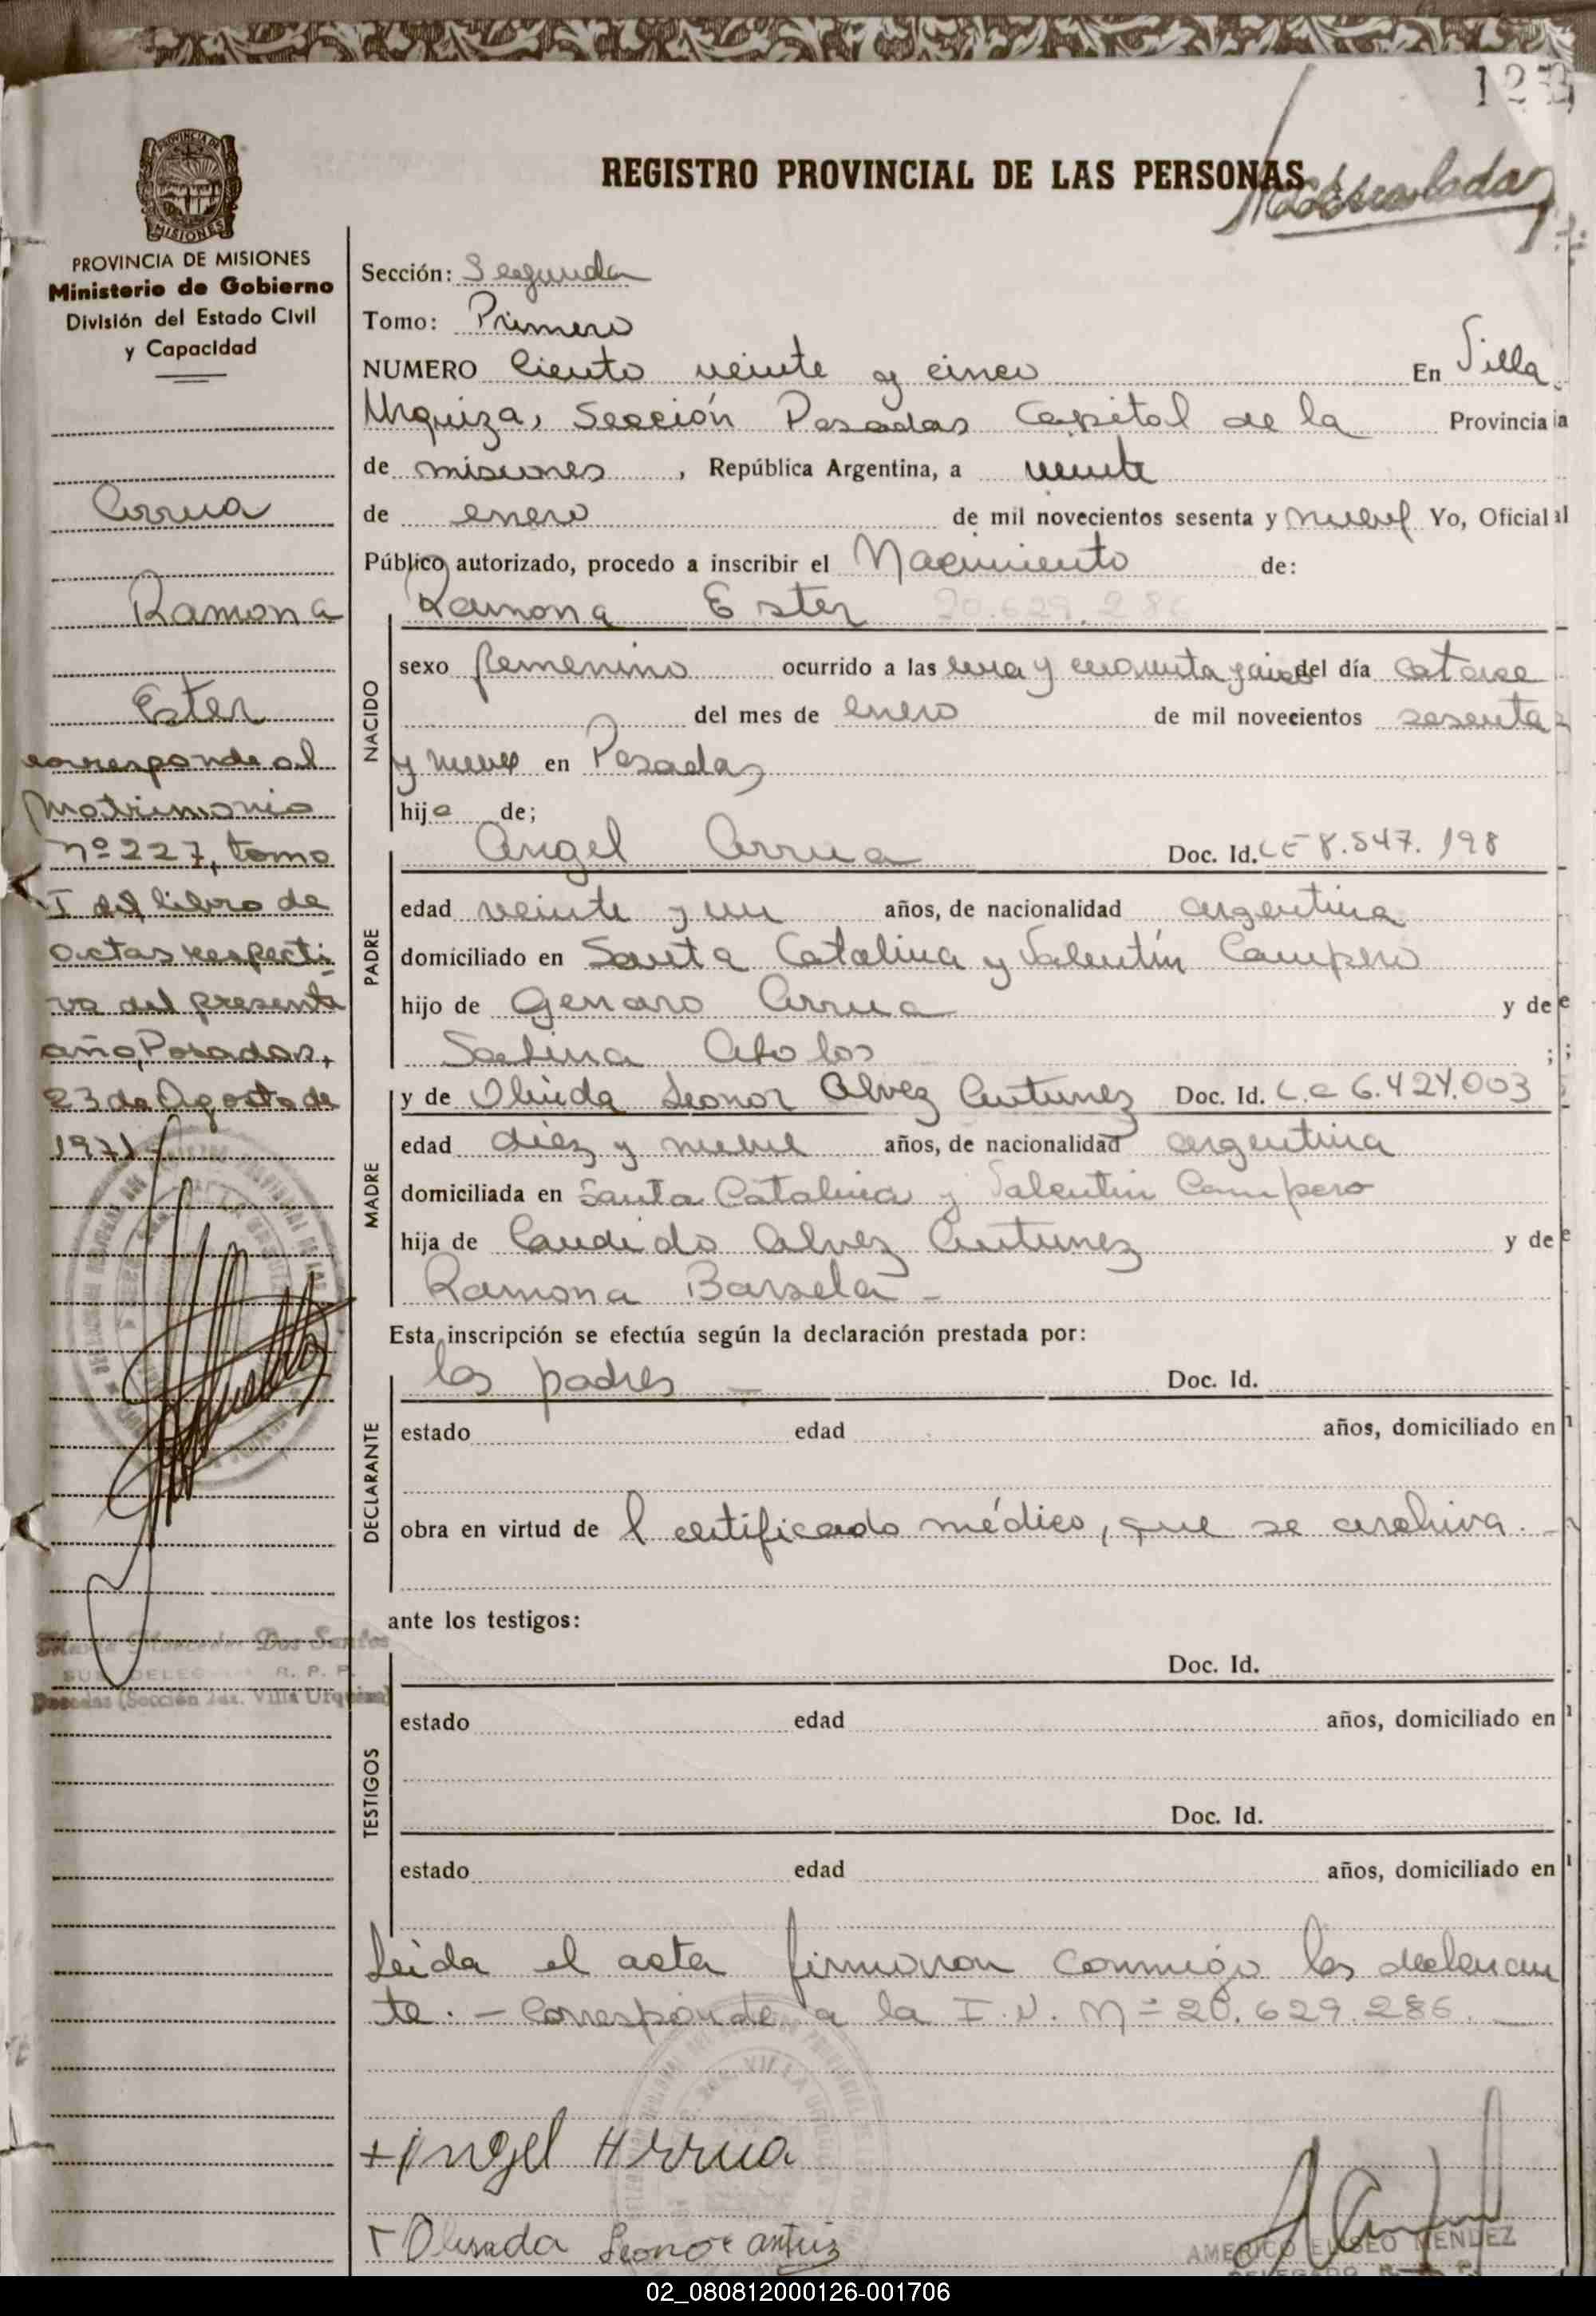 123
REGISTRO PROVINCIAL DE LAS PERSONAS
PROVINCIA DE MISIONES
Ministerio de Gobierno
División del Estado Civil
y Capacidad
Arrua
Ramona
Ester
corresponde al
Matrimonio
nº 227, tomo
I del libro de
actas respecti
va del presente
año, Posadas,
23 de Agosto de
1971
Dos Santos
Posadas (Sección 2da. Villa Urquiza)
Sección: Segunda
Tomo: Primero
NUMERO Ciento veinte y cinco En Villa
Urquiza, Sección Posadas Capital de la Provincia
de misiones, República Argentina, a veinte
de enero de mil novecientos sesenta y nueve Yo, Oficial
Público autorizado, procedo a inscribir el Nacimiento de:
Ramona Ester 20.629.286
NACIDO
sexo femenino ocurrido a las una y cuarenta y del día catorce
del mes de enero de mil novecientos sesenta
y nueve en Posadas
hija de;
PADRE
Angel Arrua Doc. Id. LE 8.547.198
edad veinte y un años, de nacionalidad argentina
domiciliado en Santa Catalina y Valentín Campero
hijo de Genaro Arrua y de
;
MADRE
y de Leonor Alvez Antunez Doc. Id. L.C 6.424.003
edad diez y nueve años, de nacionalidad argentina
domiciliada en Santa Catalina y Valentin Campero
hija de Candido Alvez Antunez y de
Ramona
Esta inscripción se efectúa según la declaración prestada por:
DECLARANTE
los padres - Doc. Id.
estado edad años, domiciliado en
obra en virtud de l certificado médico, que se archiva.
ante los testigos:
TESTIGOS
Doc. Id.
estado edad años, domiciliado en
Doc. Id.
estado edad años, domiciliado en
Leida el acta firmaron conmigo los declaran
te. - Corresponde a la I.N. Nº 20.629.286.
Angel Arrua
Leonor
AMERICO ELISEO MENDEZ
02_080812000126-001706